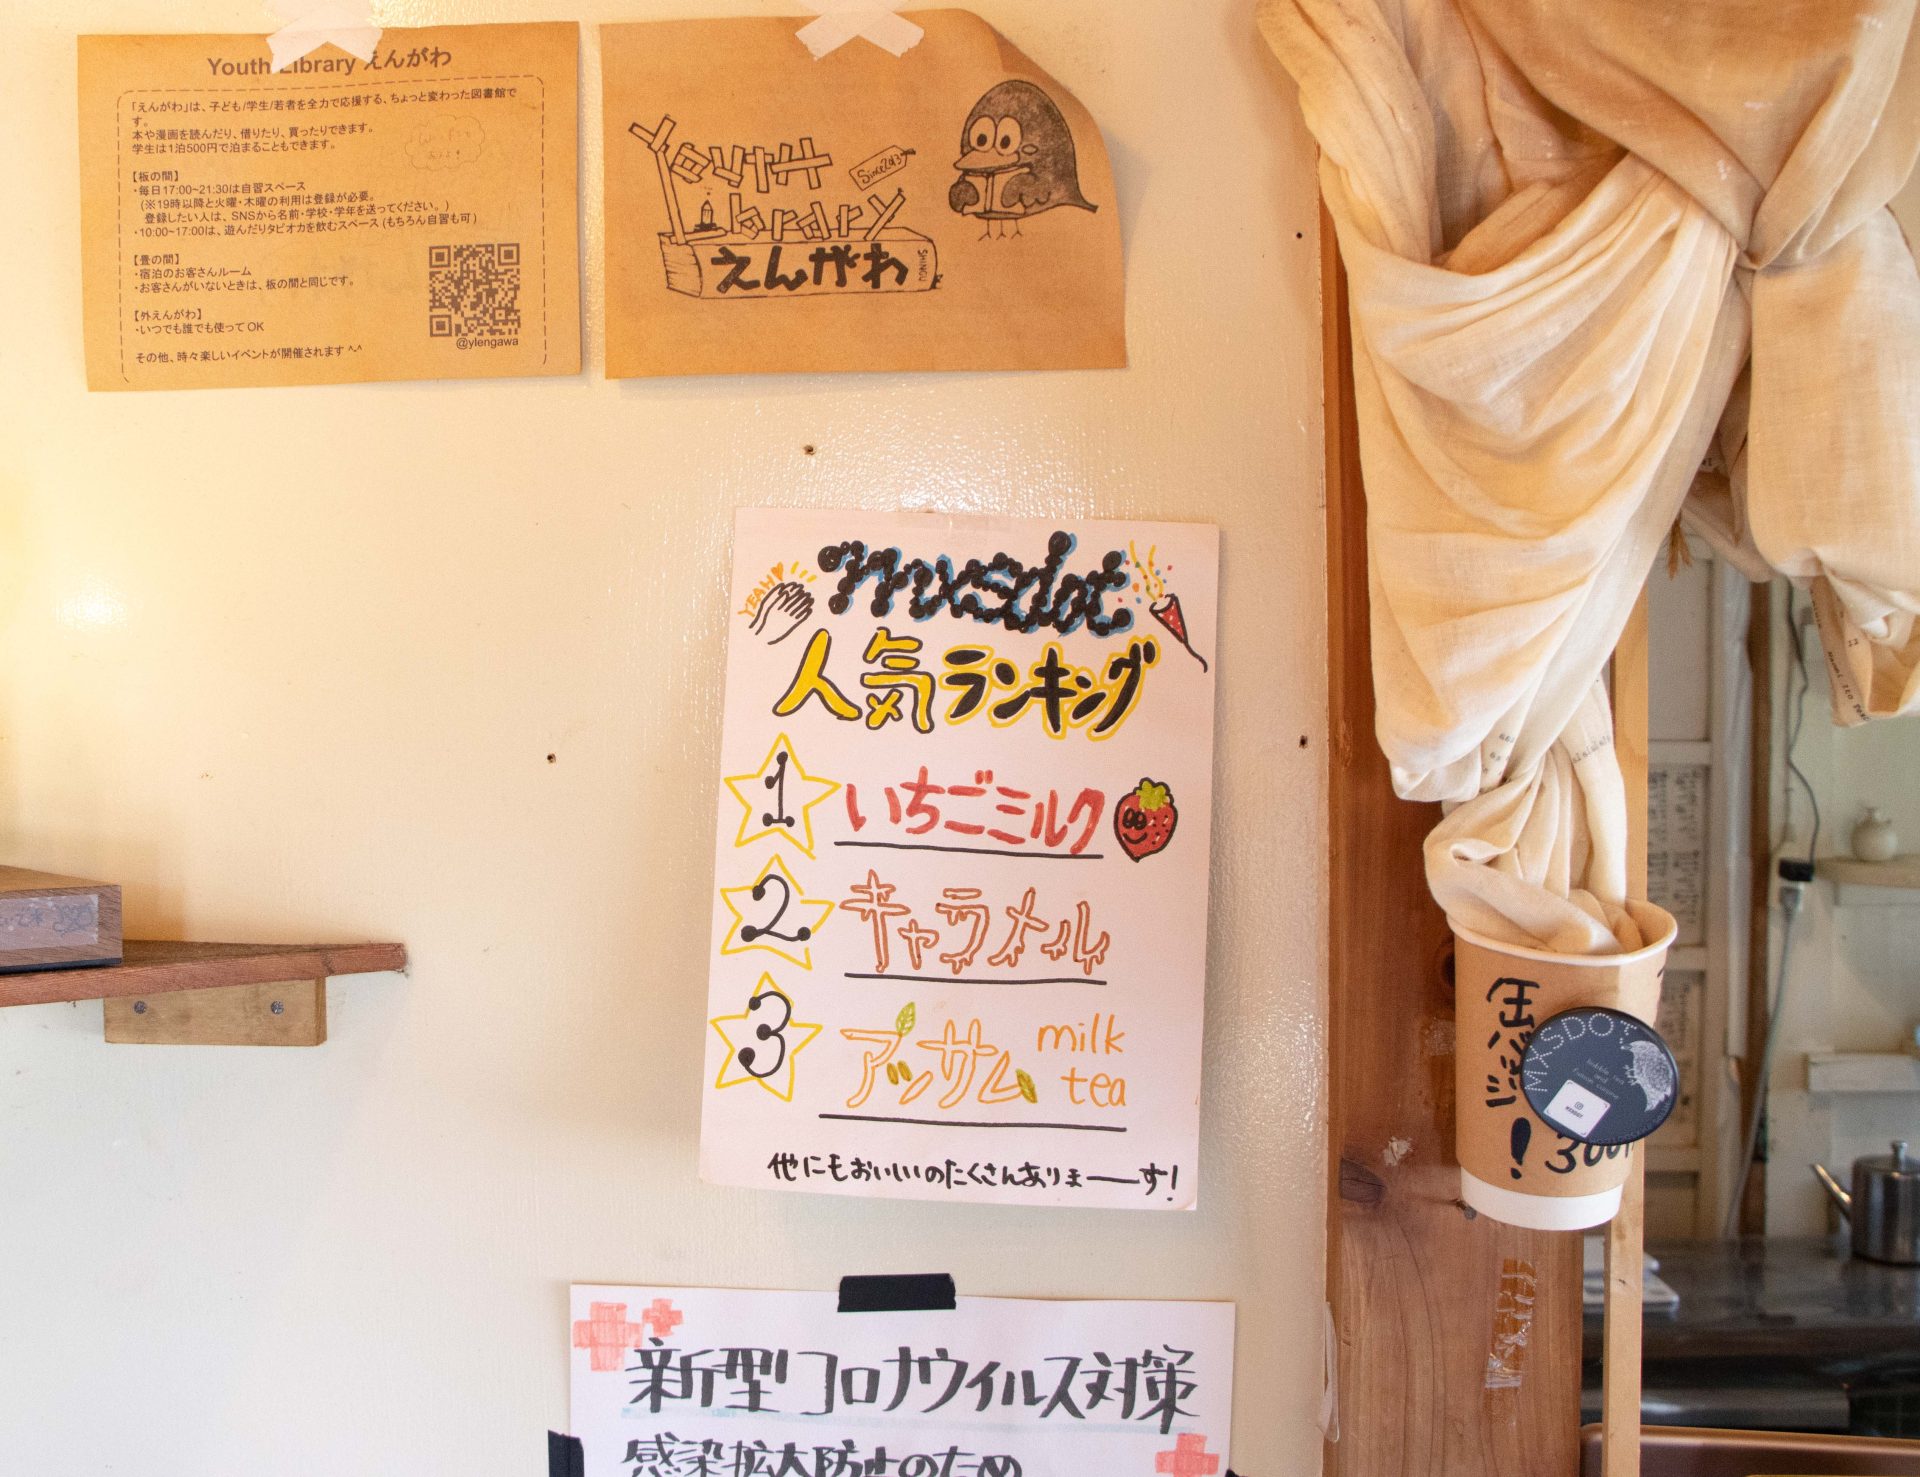 Youth Library えんがわ
「えんがわ」は、子ども/学生/若者を全力で応援する、ちょっと変わった図書館で
す。
本や漫画を読んだり、借りたり、買ったりできます。
学生は1泊500円で泊まることもできます。
【板の間】
・毎日17:00~21:30は自習スペース
(※19時以降と火曜・木曜の利用は登録が必要。
登録したい人は、SNSから名前・学校・学年を送ってください。)
・10:00~17:00は、遊んだりタピオカを飲むスペース (もちろん自習も可)
【畳の間】
・宿泊のお客さんルーム
・お客さんがいないときは、板の間と同じです。
【外えんがわ】
・いつでも誰でも使ってOK
その他、時々楽しいイベントが開催されます ^-^
@ylengawa
Youth
Since2013
Library
えんがわ
SHINGU
YEAH
musdot
人気ランキング
1 いちごミルク
2 キャラメル
3 アッサム milk tea
他にもおいしいのたくさんありまーーす!
新型コロナウイルス対策
感染拡大防止のため
MUSDOT
bubble tea
and
300